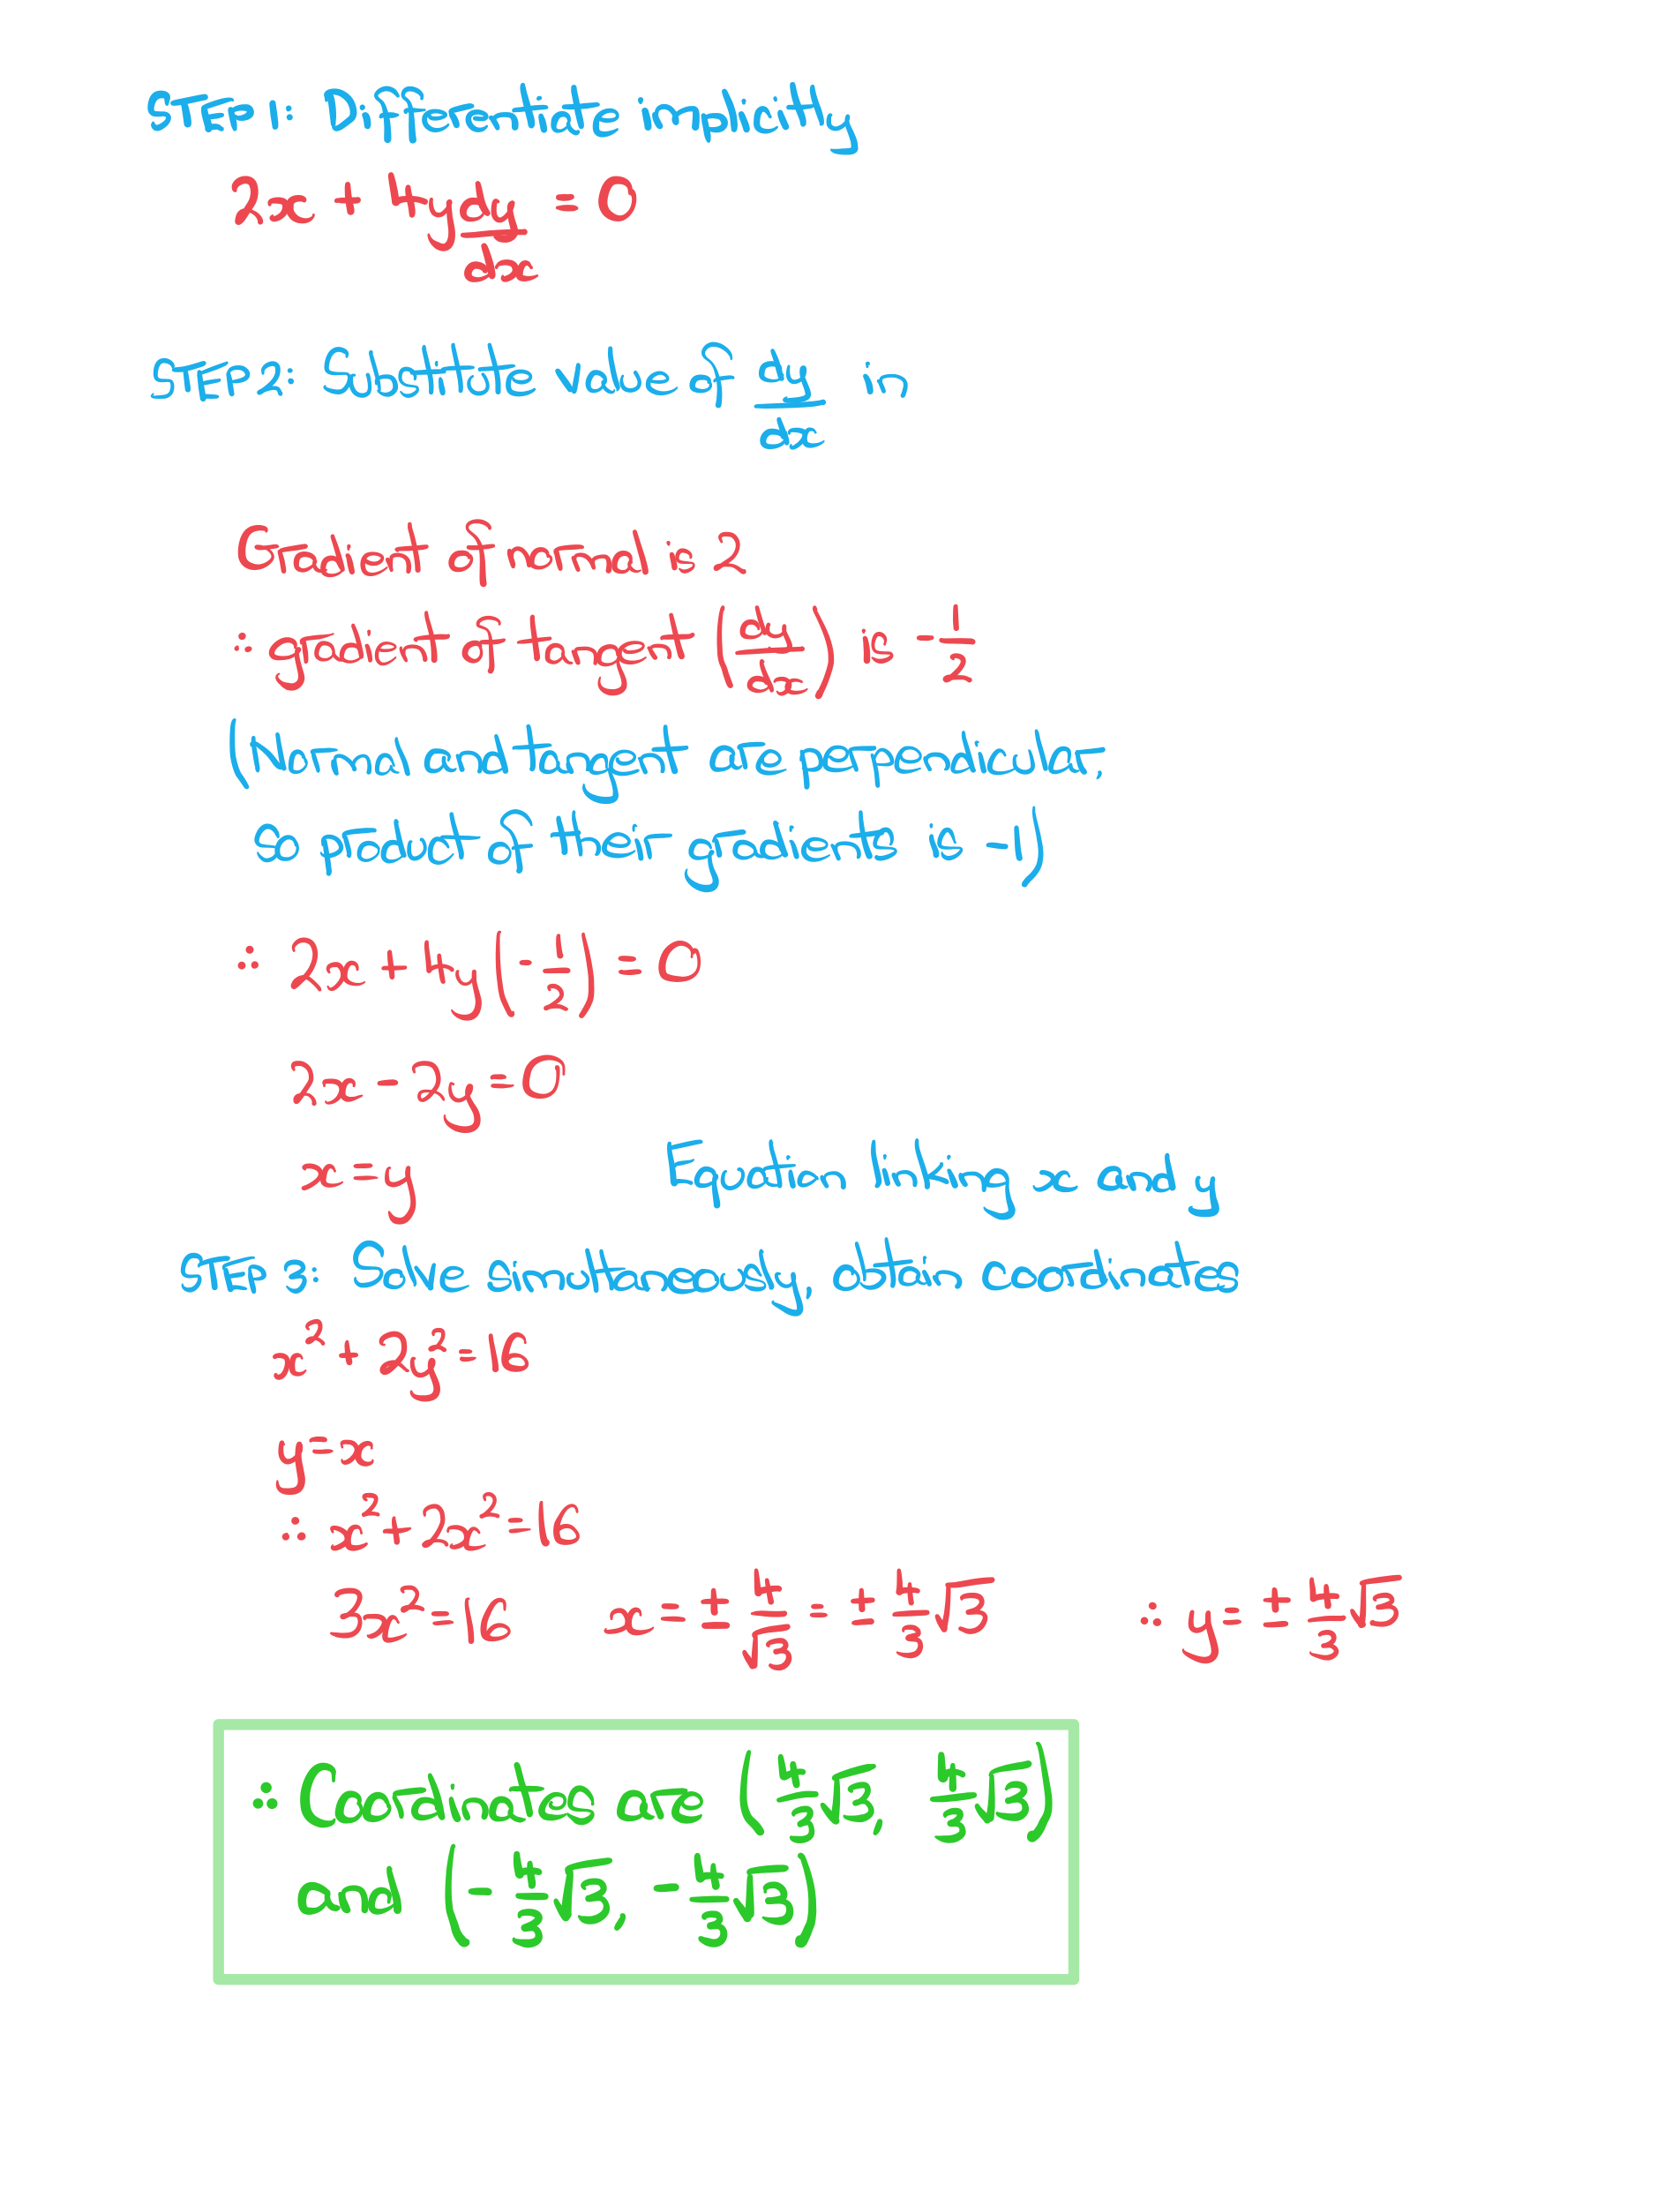 STEP 1: Differentiate implicitly
2x + 4y dy/dx = 0
STEP 2: Substitute value of dy/dx in
Gradient of normal is 2
∴ gradient of tangent (dy/dx) is -1/2
(Normal and tangent are perpendicular,
so product of their gradients is -1)
∴ 2x + 4y(-1/2) = 0
2x - 2y = 0
x = y Equation linking x and y
STEP 3: Solve simultaneously, obtain coordinates
x² + 2y² = 16
y = x
∴ x² + 2x² = 16
3x² = 16 x = ± 4/√3 = ± 4/3 √3 ∴ y = ± 4/3 √3
∴ Coordinates are (4/3 √3, 4/3 √3)
and (-4/3 √3, -4/3 √3)